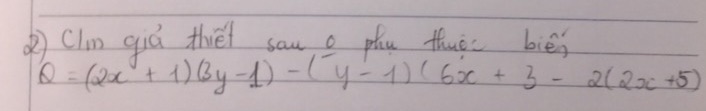 2) C/m giả thiết sau o phụ thuộc biến
Q = (2x + 1)(3y - 1) - (y - 1)(6x + 3 - 2(2x + 5)